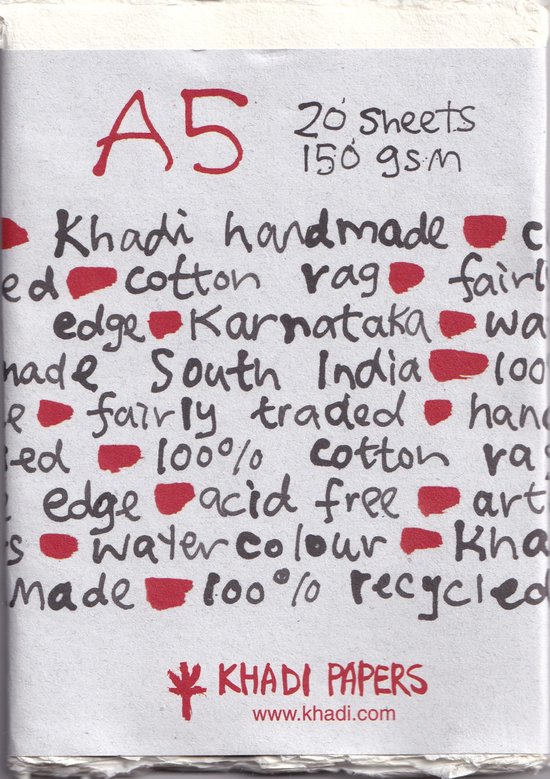 A5 20 sheets
150 gsm
Khadi handmade c
ed cotton rag fairl
edge Karnataka wa
made South India 100
e fairly traded han
ed 100% cotton ra
edge acid free art
s watercolour Kha
made 100% recycled
KHADI PAPERS
www.khadi.com